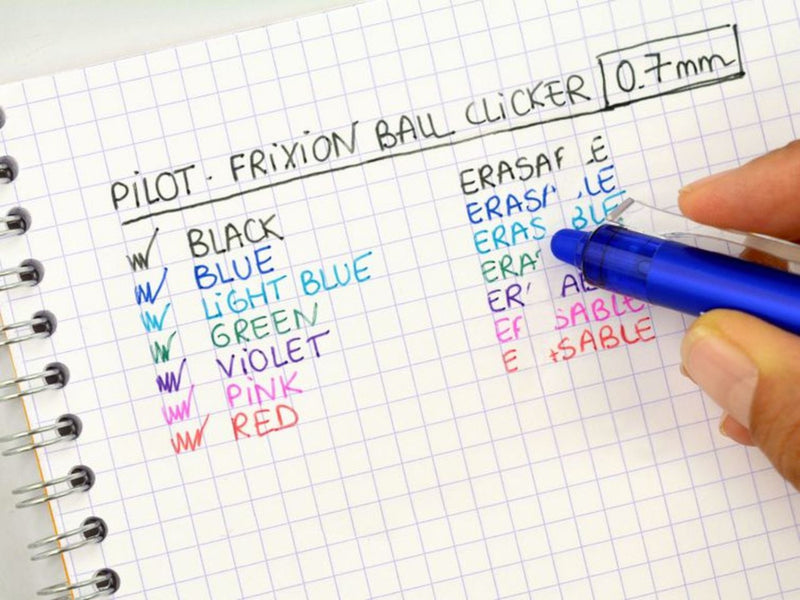 PILOT. FRIXION BALL CLICKER 0.7mm
BLACK
BLUE
LIGHT BLUE
GREEN
VIOLET
PINK
RED
ERASA E
ERASA LE
ERAS BLE
ERA
ER AB
E SABLE
E SABLE